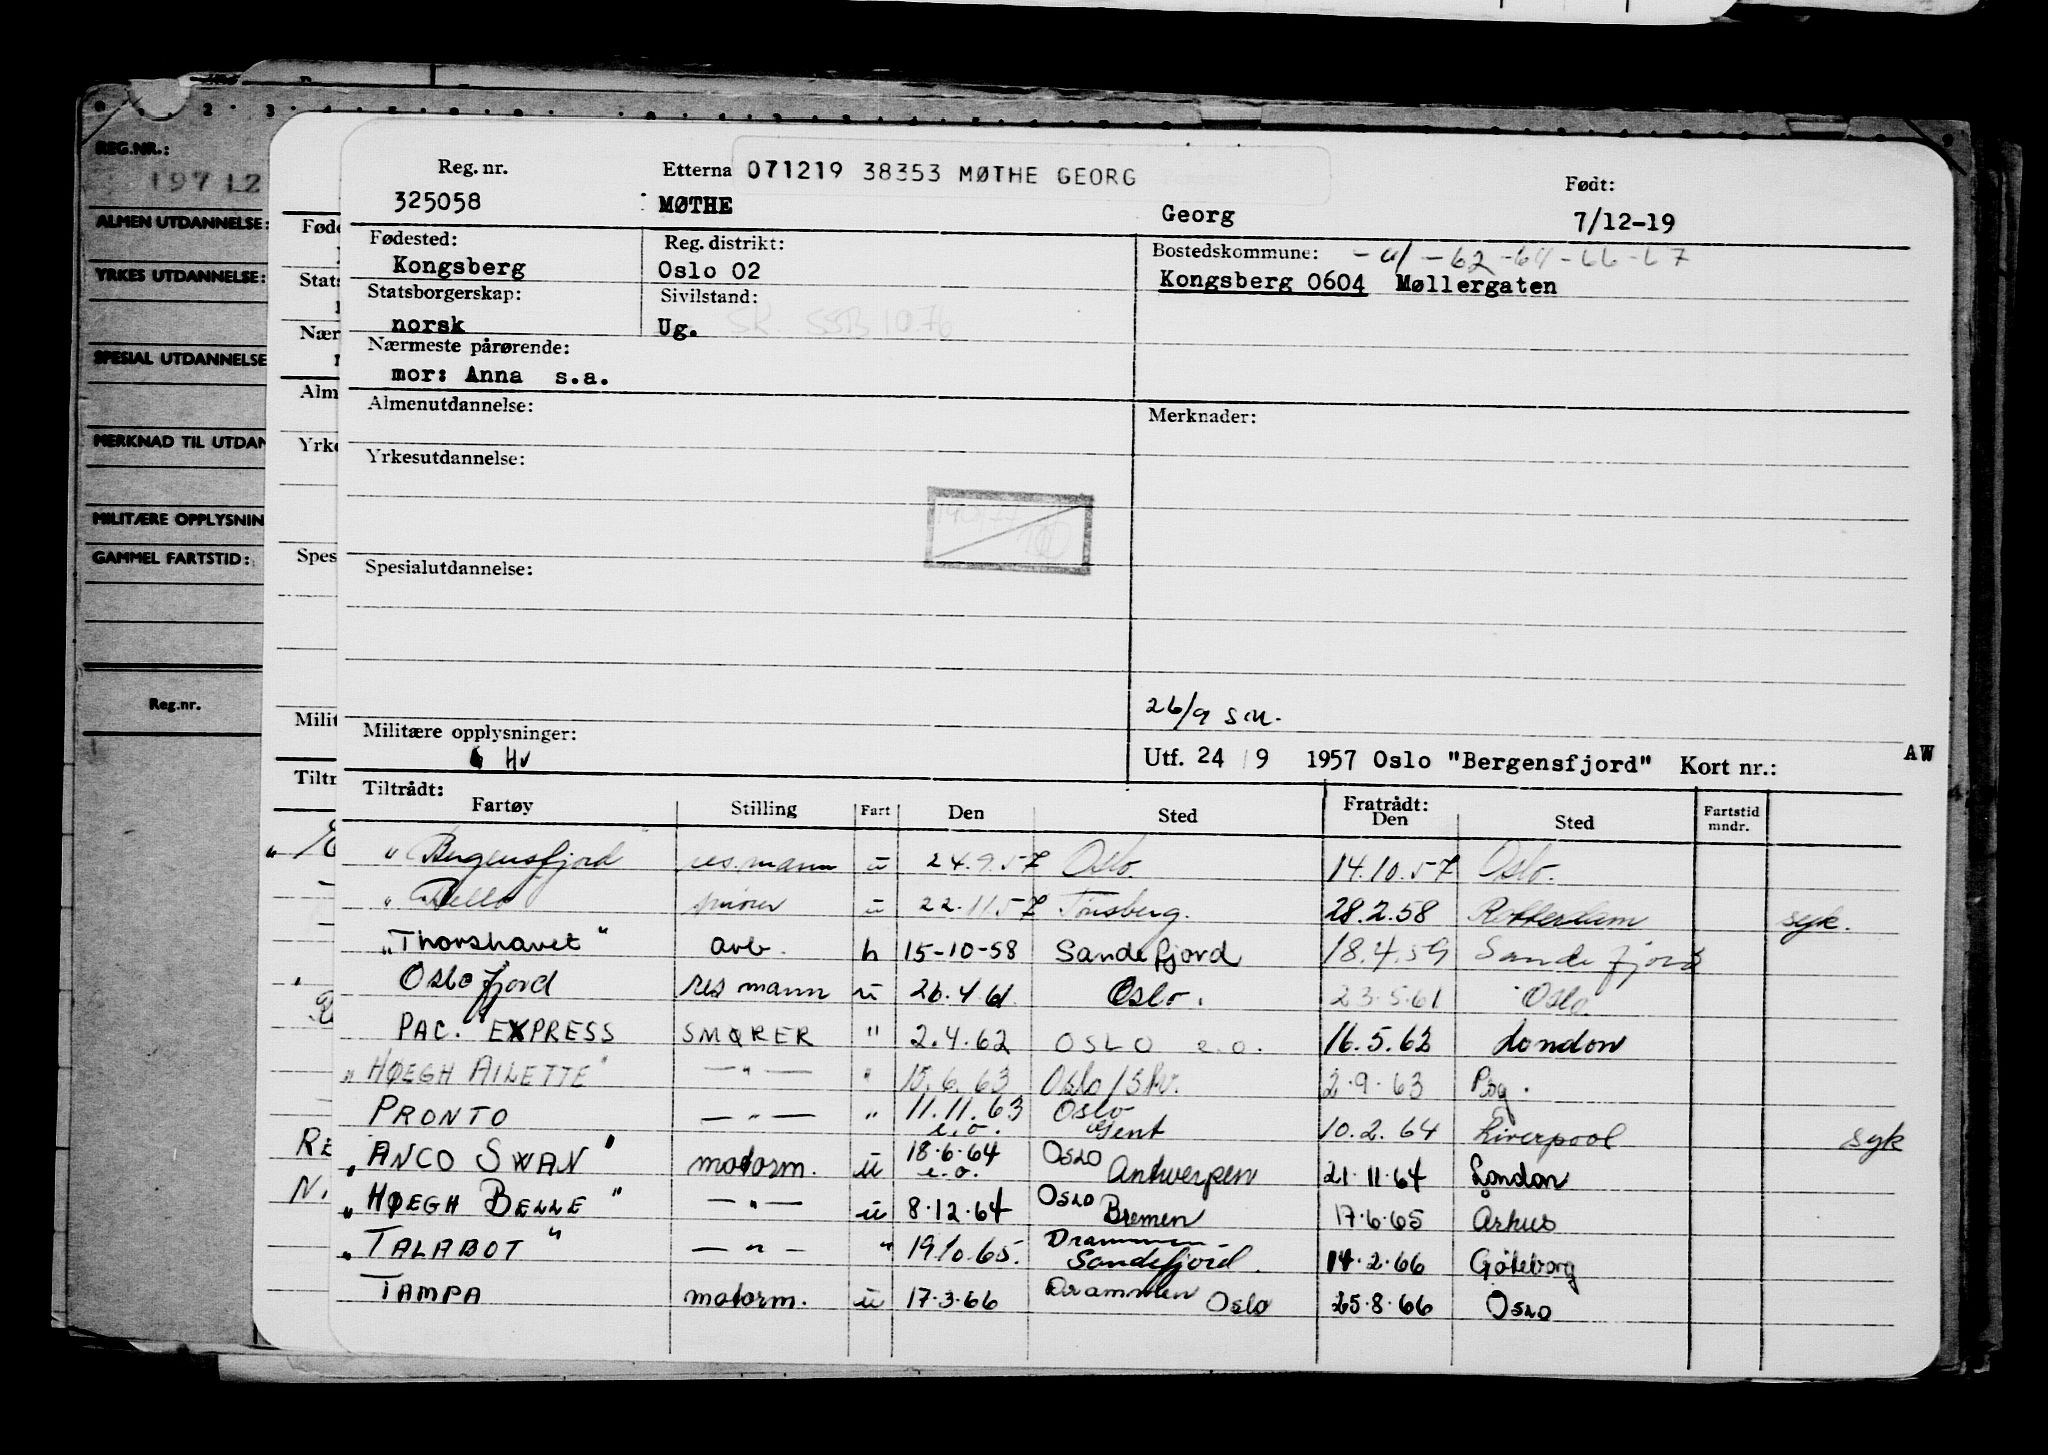 REG.NR.:
197 12
ALMEN UTDANNELSE:
YRKES UTDANNELSE:
SPESIAL UTDANNELSE
MERKNAD TIL UTDAN
MILITÆRE OPPLYSNIN
GAMMEL FARTSTID:
Reg.nr.
Føde
Stats
Nær
Alm
Yrke
Spes
Milit
Tiltr
Reg. nr. Etterna 071219 38353 MØTHE GEORG Født:
325058 MØTHE Georg 7/12-19
Fødested: Reg. distrikt: Bostedskommune: -61-62-64-66-67
Kongsberg Oslo 02 Kongsberg 0604 Møllergaten
Statsborgerskap: Sivilstand:
norsk Ug. SK. SSB 10.76
Nærmeste pårørende:
mor: Anna s.a.
Almenutdannelse: Merknader:
Yrkesutdannelse:
Spesialutdannelse:
26/9 S.M.
Militære opplysninger:
Hv Utf. 24 / 9 1957 Oslo "Bergensfjord" Kort nr.: AW
Tiltrådt: Fratrådt:
Fartøy Stilling Fart Den Sted Den Sted Fartstid mndr.
"Bergensfjord" res.mann u 24.9.57 Oslo 14.10.57 Oslo.
" smører u 22.11.57 Tønsberg. 28.2.58 Rotterdam syk.
"Thorshavet" arb. h 15-10-58 Sandefjord 18.4.59 Sandefjord
Oslofjord res mann u 26.4 61 Oslo. 23.5.61 Oslo.
PAC. EXPRESS SMØRER " 2.4.62 OSLO e.o. 16.5.62 London
"HØEGH AILETTE" — " — " 15.6.63 Oslo/Skv. 2.9.63 Psg.
PRONTO — " — " 11.11.63 e.o. Oslo Gent 10.2.64 Liverpool syk
"ANCO SWAN" motorm. u 18.6.64 e.o. Oslo Antwerpen 21.11.64 London
"HØEGH BELLE" — " — u 8.12.64 Oslo Bremen 17.6.65 Århus
"TALABOT" — " — " 19.10.65. Drammen Sandefjord. 14.2.66 Göteborg
TAMPA motorm. u 17.3.66 Drammen Oslo 25.8.66 Oslo